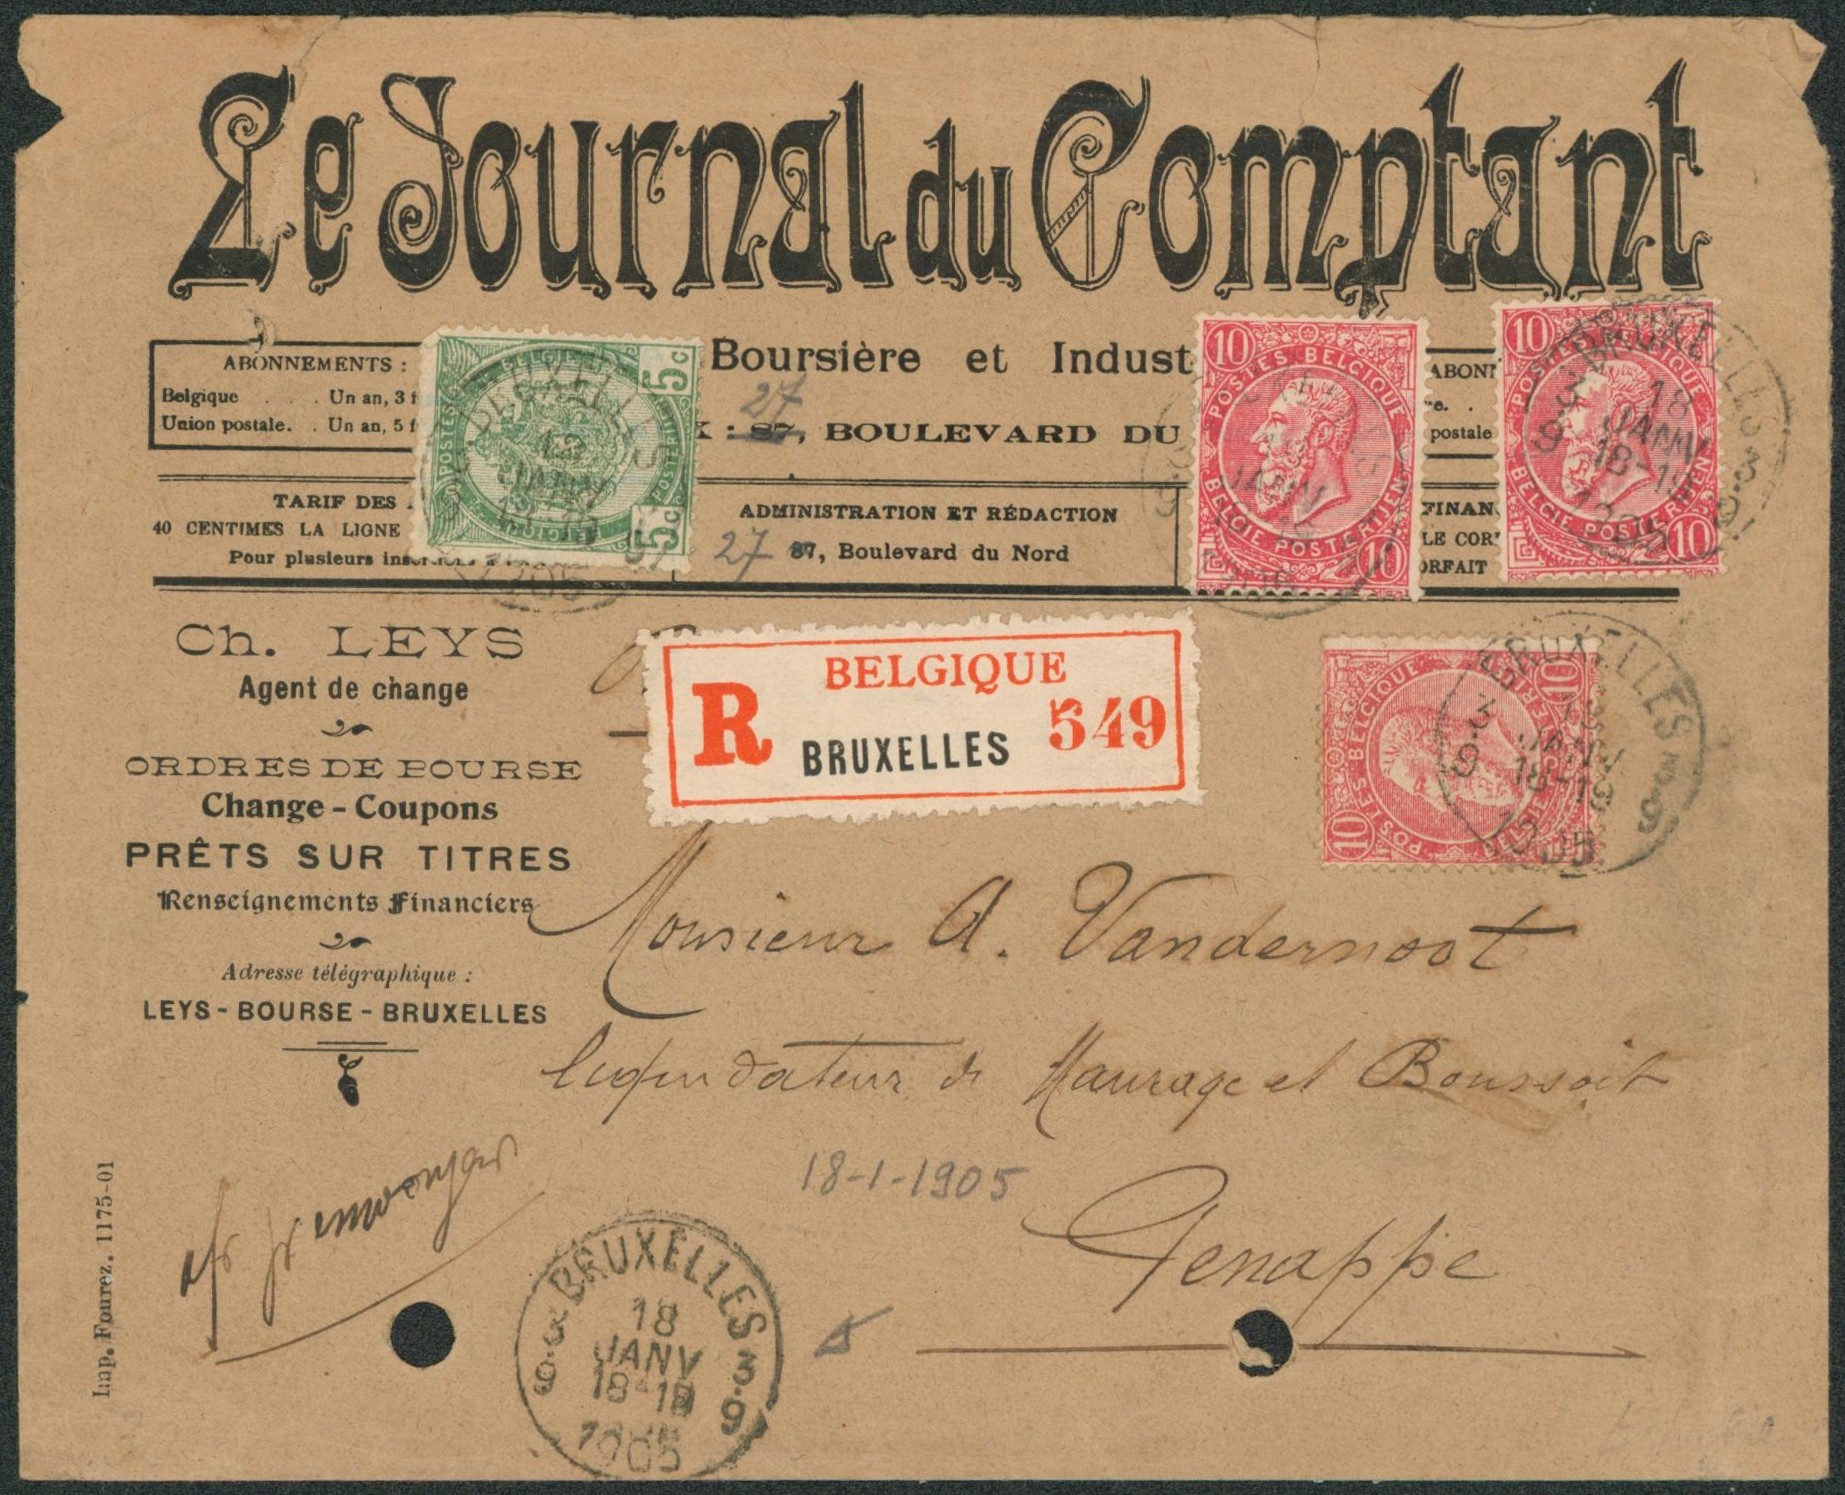 Le Journal du Comptant
Boursière et Indust
ABONNEMENTS :
Belgique . . . Un an, 3 f
Union postale. . Un an, 5 f
27
: 87, BOULEVARD DU
ABON
postale
TARIF DES
40 CENTIMES LA LIGNE
Pour plusieurs
ADMINISTRATION ET RÉDACTION
27 87, Boulevard du Nord
FINAN
LE COR
ORFAIT
5c
5c
BRUXELLES
JANV
10
POSTES BELGIQUE
BELGIE POSTERIJEN
10
JANV
10
POSTES BELGIQUE
BELGIE POSTERIJEN
10
BRUXELLES
18
JANV
18-19
1905
10
POSTES BELGIQUE
10
BRUXELLES
JANV
18-19
Ch. LEYS
Agent de change
ORDRES DE BOURSE
Change - Coupons
PRÊTS SUR TITRES
Renseignements Financiers
Adresse télégraphique :
LEYS - BOURSE - BRUXELLES
BELGIQUE
R BRUXELLES 549
Monsieur A. Vandernoot
de Maurage et Boussoit
18-1-1905
Genappe
Imp. Fourez. 1175-01
BRUXELLES
18
JANV
1905